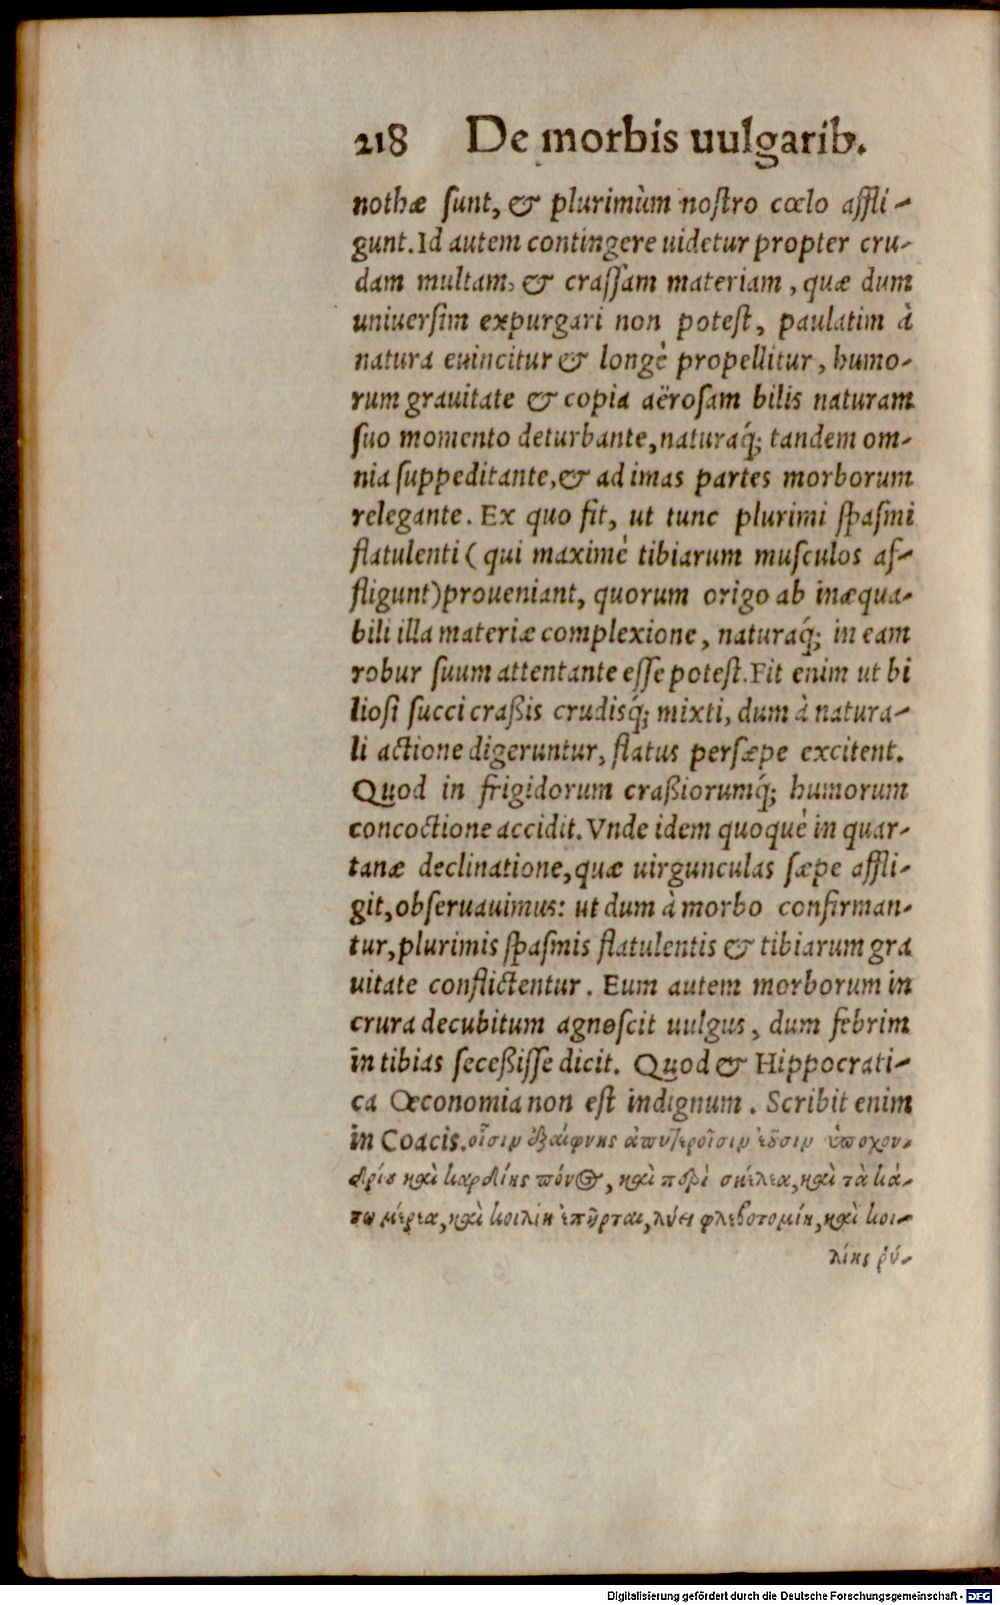 218 De morbis uulgarib.
nothæ ſunt, & plurimùm noſtro cœlo affli-
gunt. Id autem contingere uidetur propter cru-
dam multam, & craſſam materiam, quæ dum
uniuerſim expurgari non poteſt, paulatim à
natura euincitur & longè propellitur, humo-
rum grauitate & copia aëroſam bilis naturam
ſuo momento deturbante, naturaq́; tandem om-
nia ſuppeditante, & ad imas partes morborum
relegante. Ex quo fit, ut tunc plurimi ſpaſmi
flatulenti (qui maximè tibiarum muſculos af-
fligunt) proueniant, quorum origo ab inæqua-
bili illa materiæ complexione, naturaq́; in eam
robur ſuum attentante eſſe poteſt. Fit enim ut bi
lioſi ſucci craßis crudisq́; mixti, dum à natura-
li actione digeruntur, flatus perſæpe excitent.
Quod in frigidorum craßiorumq́; humorum
concoctione accidit. Vnde idem quoquè in quar-
tanæ declinatione, quæ uirgunculas ſæpe affli-
git, obſeruauimus: ut dum à morbo confirman-
tur, plurimis ſpaſmis flatulentis & tibiarum gra
uitate conflictentur. Eum autem morborum in
crura decubitum agnoſcit uulgus, dum febrim
in tibias ſeceßiſſe dicit. Quod & Hippocrati-
ca Œconomia non eſt indignum. Scribit enim
in Coacis. οἷσιν ἐξαίφνης ἀπυρέτοισιν ἐοῦσιν ὑποχον-
δρίου καὶ καρδίης πόνος, καὶ περὶ σκέλεα, καὶ τὰ κά-
τω μέρεα, καὶ κοιλίη ἐπῆρται, λύει φλεβοτομίη, καὶ κοι-
λίης ῥύ-
Digitalisierung gefördert durch die Deutsche Forschungsgemeinschaft - DFG